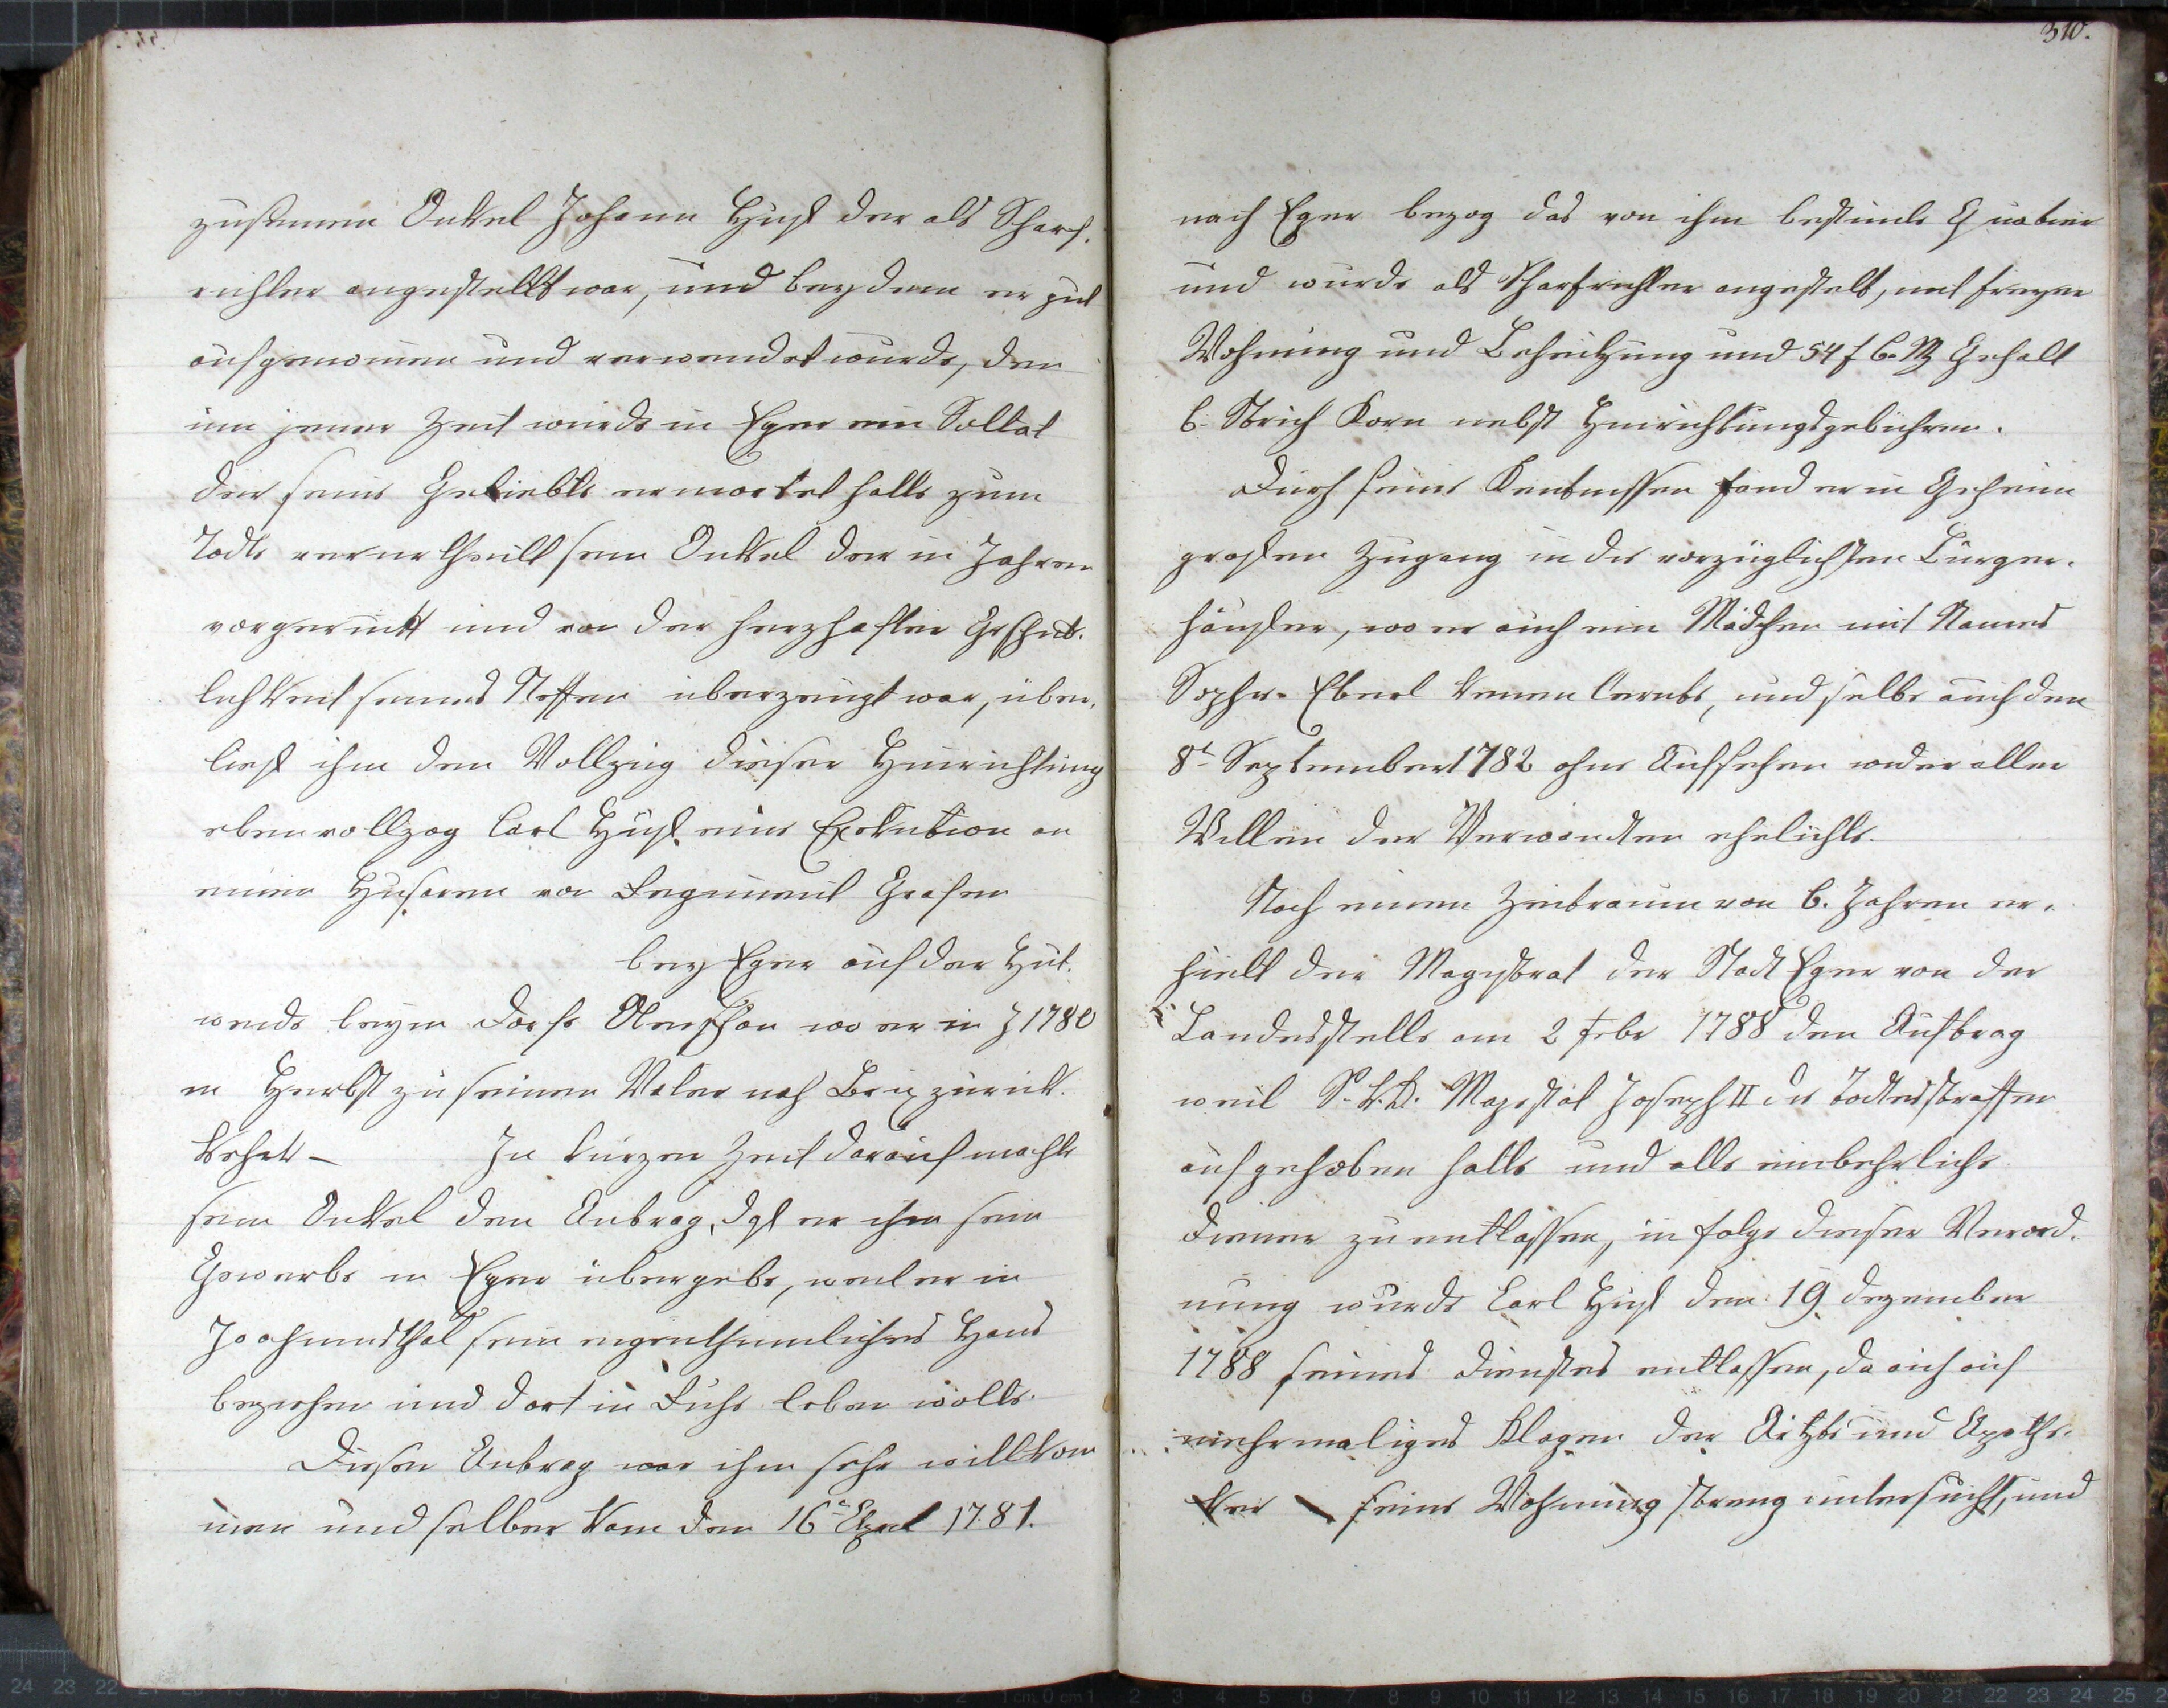 zu seinem Onkel Johann Huß der als Scharf.
richter angestellt war, und bey dem er gut
aufgenomen und verwendet wurde, den
inn jener Zeit wurde in Eger ein Soltat
der seine Geliebte ermortet hatte zum
Todte verurtheilt sein Onkel der in Jahren
vorgerückt und von der herzhaften Geschik.
lichkeit seines Neffen überzeugt war, über.
ließ ihm den Vollzug dieser Hinrichtung
eben vollzog Carl Huß eine Exekution an
einen Husaren von Regiment Grafen
bey Eger auf der Hut.
weide beym Dorfe wo er in J 1780
in Herbst zu seinem Vater nach Brix zurück.
kehrte – In kurzer Zeit darauf machte
sein Onkel den Antrag, daß er ihm sein
Gewerbe in Eger übergebe, weil er in
Joachimsthal sein eigenthumliches Haus
beziehen und dort in Ruhe leben wolle.
Dieser Antrag war ihm sehr willkom
men und selber kam den 16t April 1781.
310.
nach Eger bezog das von ihm bestimte Quatier
und wurde als Scharfrichter angestelt, mit freyer
Wohnung und Beheitzung und 54 f C. M Gehalt
6. Strich Korn nebst Hinrichtungsgebühren.
Durch seine Kentnissen fand er in Geheim
großen Zugang in die vorzüglichsten Bürger.
häußer, wo er auch ein Mädchen mit Names
Sophie Eberl kennen lernte, und selbe auch den
8t September 1782 ohne Aufsehen wider allen
Willen der Verwandten ehelichte.
Nach einen Zeitraum von 6. Jahren er.
hielt der Magistrat der Stadt Eger von der
Landesstelle am 2 Febr 1788 den Auftrag
weil S. k. k. Majestät Joseph II die Todtesstraffen
aufgehoben hatte und alle einbehrliche
Diener zu entlassen, in folge dieser Verord.
nung wurde Carl Huß den 19 Dezember
1788 seines Dienstes entlassen, da auch auf
mehrmaliges Klagen der Ärtzte und Apothe.
ker seine Wohnung streng untersucht, und